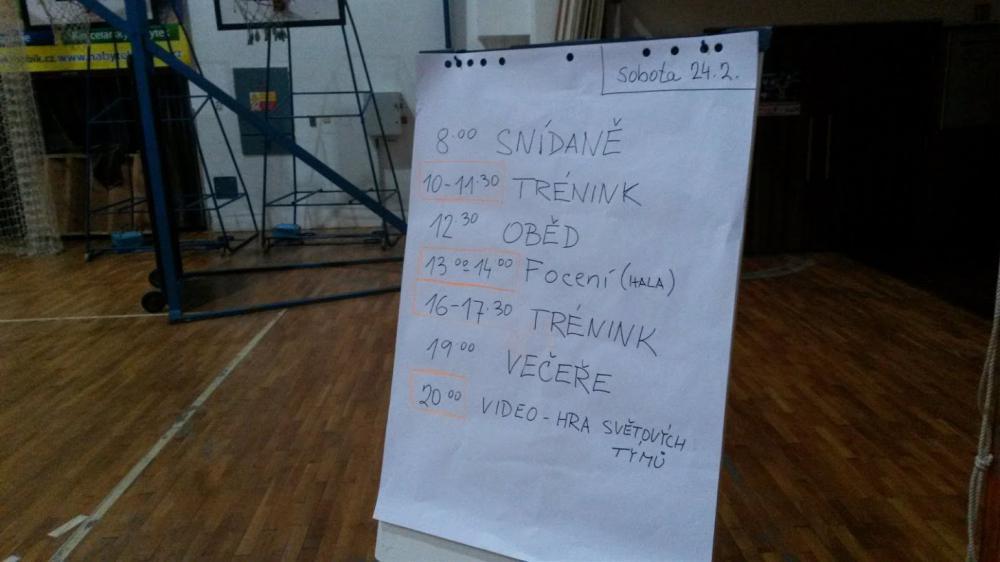 sobota 24.2.
8.00 SNÍDANĚ
10-11.30 TRÉNINK
12 30 OBĚD
13 00-14 00 Focení (HALA)
16-17.30 TRÉNINK
19.00 VEČEŘE
20 00 VIDEO - HRA SVĚTOVÝCH
TÝMŮ